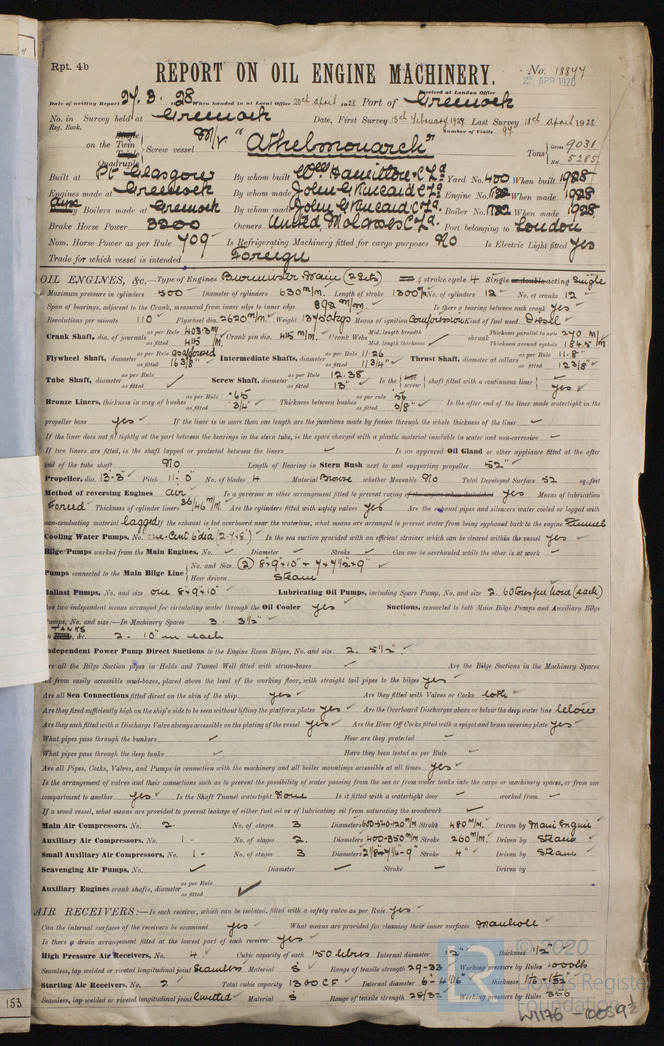 Rpt. 4b
REPORT ON OIL ENGINE MACHINERY.
No. 18844
Received at London Office
25 APR 1928
Date of writing Report 24. 3. 28 When handed in at Local Office 20th April 1928 Port of Greenock
No. in Survey held at Greenock Date, First Survey 15th February 1927 Last Survey 18th April 1928
Reg. Book. Number of Visits 94
Single
on the Twin Screw vessel M/V "Athelmonarch" Tons Gross 9031
Triple Net 5285
Quadruple
Built at Pt Glasgow By whom built Wm Hamilton & Co Ld Yard No. 400 When built 1928
Engines made at Greenock By whom made John G Kincaid & Co Ld. Engine No. When made 1928
Boilers made at Greenock By whom made John G Kincaid & Co Ld. Boiler No. When made 1928
Brake Horse Power 3200 Owners United Molasses Co Ld. Port belonging to London
Nom. Horse Power as per Rule 709 Is Refrigerating Machinery fitted for cargo purposes No Is Electric Light fitted Yes
Trade for which vessel is intended Foreign
OIL ENGINES, &c.—Type of Engines Burmeister Wain (2 Sets) stroke cycle 4 Single or double acting Single
Maximum pressure in cylinders 500 Diameter of cylinders 630 m/m. Length of stroke 1300 m/m No. of cylinders 12 No. of cranks 12
Span of bearings, adjacent to the Crank, measured from inner edge to inner edge 898 m/m. Is there a bearing between each crank Yes
Revolutions per minute 110 Flywheel dia. 2620 m/m Weight Means of ignition Compression Kind of fuel used Diesel
Crank Shaft, dia. of journals as per Rule 403.3 m/m as fitted 415 m/m. Crank pin dia. 415 m/m. Crank Webs Mid. length breadth Mid. length thickness shrunk Thickness parallel to axis 270 m/m Thickness around eyehole 184.5 m/m
Flywheel Shaft, diameter as per Rule as approved as fitted 16 3/8" Intermediate Shafts, diameter as per Rule 11.26 as fitted 11 3/4" Thrust Shaft, diameter at collars as per Rule 11.8" as fitted 12 3/8"
Tube Shaft, diameter as per Rule as fitted Screw Shaft, diameter as per Rule 12.38 as fitted 13" Is the tube screw shaft fitted with a continuous liner Yes
Bronze Liners, thickness in way of bushes as per rule .65 as fitted 3/4" Thickness between bushes as per rule .56 as fitted 5/8" Is the after end of the liner made watertight in the
propeller boss Yes If the liner is in more than one length are the junctions made by fusion through the whole thickness of the liner
If the liner does not fit tightly at the part between the bearings in the stern tube, is the space charged with a plastic material insoluble in water and non-corrosive
If two liners are fitted, is the shaft lapped or protected between the liners Is an approved Oil Gland or other appliance fitted at the after
end of the tube shaft No Length of Bearing in Stern Bush next to and supporting propeller 52"
Propeller, dia. 13'-3" Pitch 11'-0" No. of blades 4 Material Bronze whether Moveable No Total Developed Surface 52 sq. feet
Method of reversing Engines Air Is a governor or other arrangement fitted to prevent racing of the engine when declutched Yes Means of lubrication
Forced Thickness of cylinder liners 36/46 m/m. Are the cylinders fitted with safety valves Yes Are the exhaust pipes and silencers water cooled or lagged with
non-conducting material lagged If the exhaust is led overboard near the waterline, what means are arranged to prevent water from being syphoned back to the engine Funnel
Cooling Water Pumps, No. Is the sea suction provided with an efficient strainer which can be cleared within the vessel Yes
Bilge Pumps worked from the Main Engines, No. Diameter Stroke Can one be overhauled while the other is at work
Pumps connected to the Main Bilge Line No. and Size (2) 8"+9"×10" + 7"+7½"×9"
How driven Steam
Ballast Pumps, No. and size one 8"+9"×10" Lubricating Oil Pumps, including Spare Pump, No. and size 2. 60 tons per hour (each)
Are two independent means arranged for circulating water through the Oil Cooler Yes Suctions, connected to both Main Bilge Pumps and Auxiliary Bilge
Pumps, No. and size:—In Machinery Spaces 3. 3½"
TANKS
In &c. 2. 10" in each
Independent Power Pump Direct Suctions to the Engine Room Bilges, No. and size 2. 5½"
Are all the Bilge Suction pipes in Holds and Tunnel Well fitted with strum-boxes Are the Bilge Suctions in the Machinery Spaces
led from easily accessible mud-boxes, placed above the level of the working floor, with straight tail pipes to the bilges Yes
Are all Sea Connections fitted direct on the skin of the ship Yes Are they fitted with Valves or Cocks both
Are they fixed sufficiently high on the ship's side to be seen without lifting the platform plates Yes Are the Overboard Discharges above or below the deep water line below
Are they each fitted with a Discharge Valve always accessible on the plating of the vessel Yes Are the Blow Off Cocks fitted with a spigot and brass covering plate Yes
What pipes pass through the bunkers How are they protected
What pipes pass through the deep tanks Have they been tested as per Rule
Are all Pipes, Cocks, Valves, and Pumps in connection with the machinery and all boiler mountings accessible at all times Yes
Is the arrangement of valves and their connections such as to prevent the possibility of water passing from the sea or from water tanks into the cargo or machinery spaces, or from one
compartment to another Yes Is the Shaft Tunnel watertight None Is it fitted with a watertight door worked from
If a wood vessel, what means are provided to prevent leakage of either fuel oil or of lubricating oil from saturating the woodwork
Main Air Compressors, No. 2 No. of stages 3 Diameters Stroke 480 m/m Driven by Main Engine
Auxiliary Air Compressors, No. 1 No. of stages 2 Diameters 400-350 m/m Stroke 260 m/m. Driven by Steam
Small Auxiliary Air Compressors, No. 1 No. of stages 3 Diameters Stroke 4" Driven by Steam
Scavenging Air Pumps, No. Diameter Stroke Driven by
Auxiliary Engines crank shafts, diameter as per Rule as fitted
AIR RECEIVERS:—Is each receiver, which can be isolated, fitted with a safety valve as per Rule Yes
Can the internal surfaces of the receivers be examined Yes What means are provided for cleaning their inner surfaces Manhole
Is there a drain arrangement fitted at the lowest part of each receiver Yes
High Pressure Air Receivers, No. 4 Cubic capacity of each 150 litres Internal diameter 12" thickness 1/2"
Seamless, lap welded or riveted longitudinal joint Seamless Material S Range of tensile strength 29-33 Working pressure by Rules 1000 lbs
Starting Air Receivers, No. 2 Total cubic capacity 1300 CF Internal diameter thickness
Seamless, lap welded or riveted longitudinal joint riveted Material S Range of tensile strength 28/32 Working pressure by Rules 350
© 2020
Lloyd's Register
Foundation
W1176-0059½
153